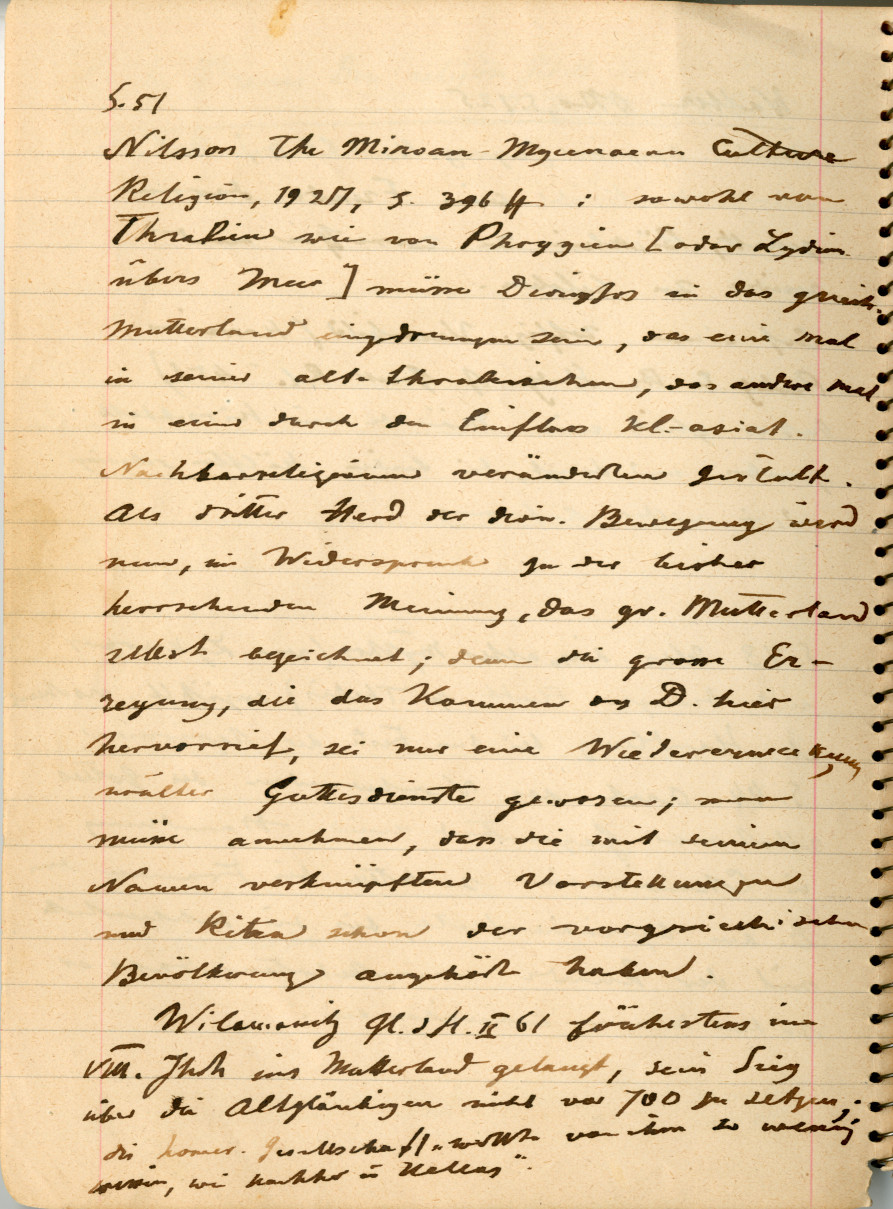 S. 51
Nilsson The Minoan-Mycenaean Culture
Religion, 1927, S. 396 ff : sowohl von
Thrakien wie von Phrygien [oder Lydien
übers Meer] müsse Dionysos in das griech.
Mutterland eingedrungen sein, das eine Mal
in seiner alt-thrakischen, das andere Mal
in einer durch den Einfluss kl.-asiat.
Nachbarreligionen veränderten Gestalt.
Als dritter Herd der dion. Bewegung wird
nun, im Widerspruch zu der bisher
herrschenden Meinung, das gr. Mutterland
selbst bezeichnet; denn die grosse Er-
regung, die das Kommen des D. hier
hervorrief, sei nur eine Wiedererweckung
uralter Gottesdienste gewesen; man
müsse annehmen, dass die mit seinem
Namen verknüpften Vorstellungen
und Riten schon der vorgriechischen
Bevölkerung angehört haben.
Wilamowitz Gl. d. H. II 61 frühestens im
VIII. Jhdt ins Mutterland gelangt, sein Sieg
über die Altgläubigen nicht vor 700 zu setzen;
die homer. Gesellschaft „wollte von ihm so wenig
wissen, wie nachher in Hellas“.